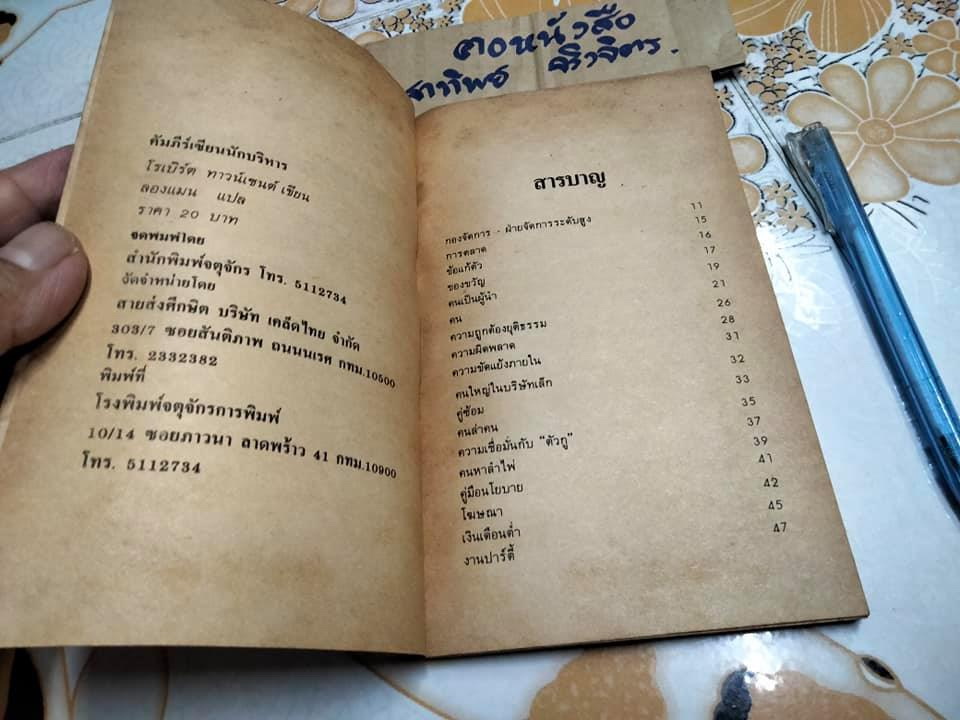 คอหนังสือ
คัมภีร์เซียนนักบริหาร
โรเบิร์ต ทาวน์เซนด์ เขียน
ลองแมน แปล
ราคา 20 บาท
จดพิมพ์โดย
สำนักพิมพ์จตุจักร โทร. 5112734
จัดจำหน่ายโดย
สายส่งศึกษิต บริษัท เคล็ดไทย จำกัด
303/7 ซอยสันติภาพ ถนนนเรศ กทม.10500
โทร. 2332382
พิมพ์ที่
โรงพิมพ์จตุจักรการพิมพ์
10/14 ซอยภาวนา ลาดพร้าว 41 กทม.10900
โทร. 5112734
สารบาญ
กองจัดการ - ฝ่ายจัดการระดับสูง 11
การตลาด 15
ข้อแก้ตัว 16
ของขวัญ 17
คนเป็นผู้นำ 19
คน 21
ความถูกต้องยุติธรรม 26
ความผิดพลาด 28
ความขัดแย้งภายใน 31
คนใหญ่ในบริษัทเล็ก 32
คู่ซ้อม 33
คนล่าคน 35
ความเชื่อมั่นกับ "ตัวกู" 37
คนหาลำไพ่ 39
คู่มือนโยบาย 41
โฆษณา 42
เงินเดือนต่ำ 45
งานปาร์ตี้ 47